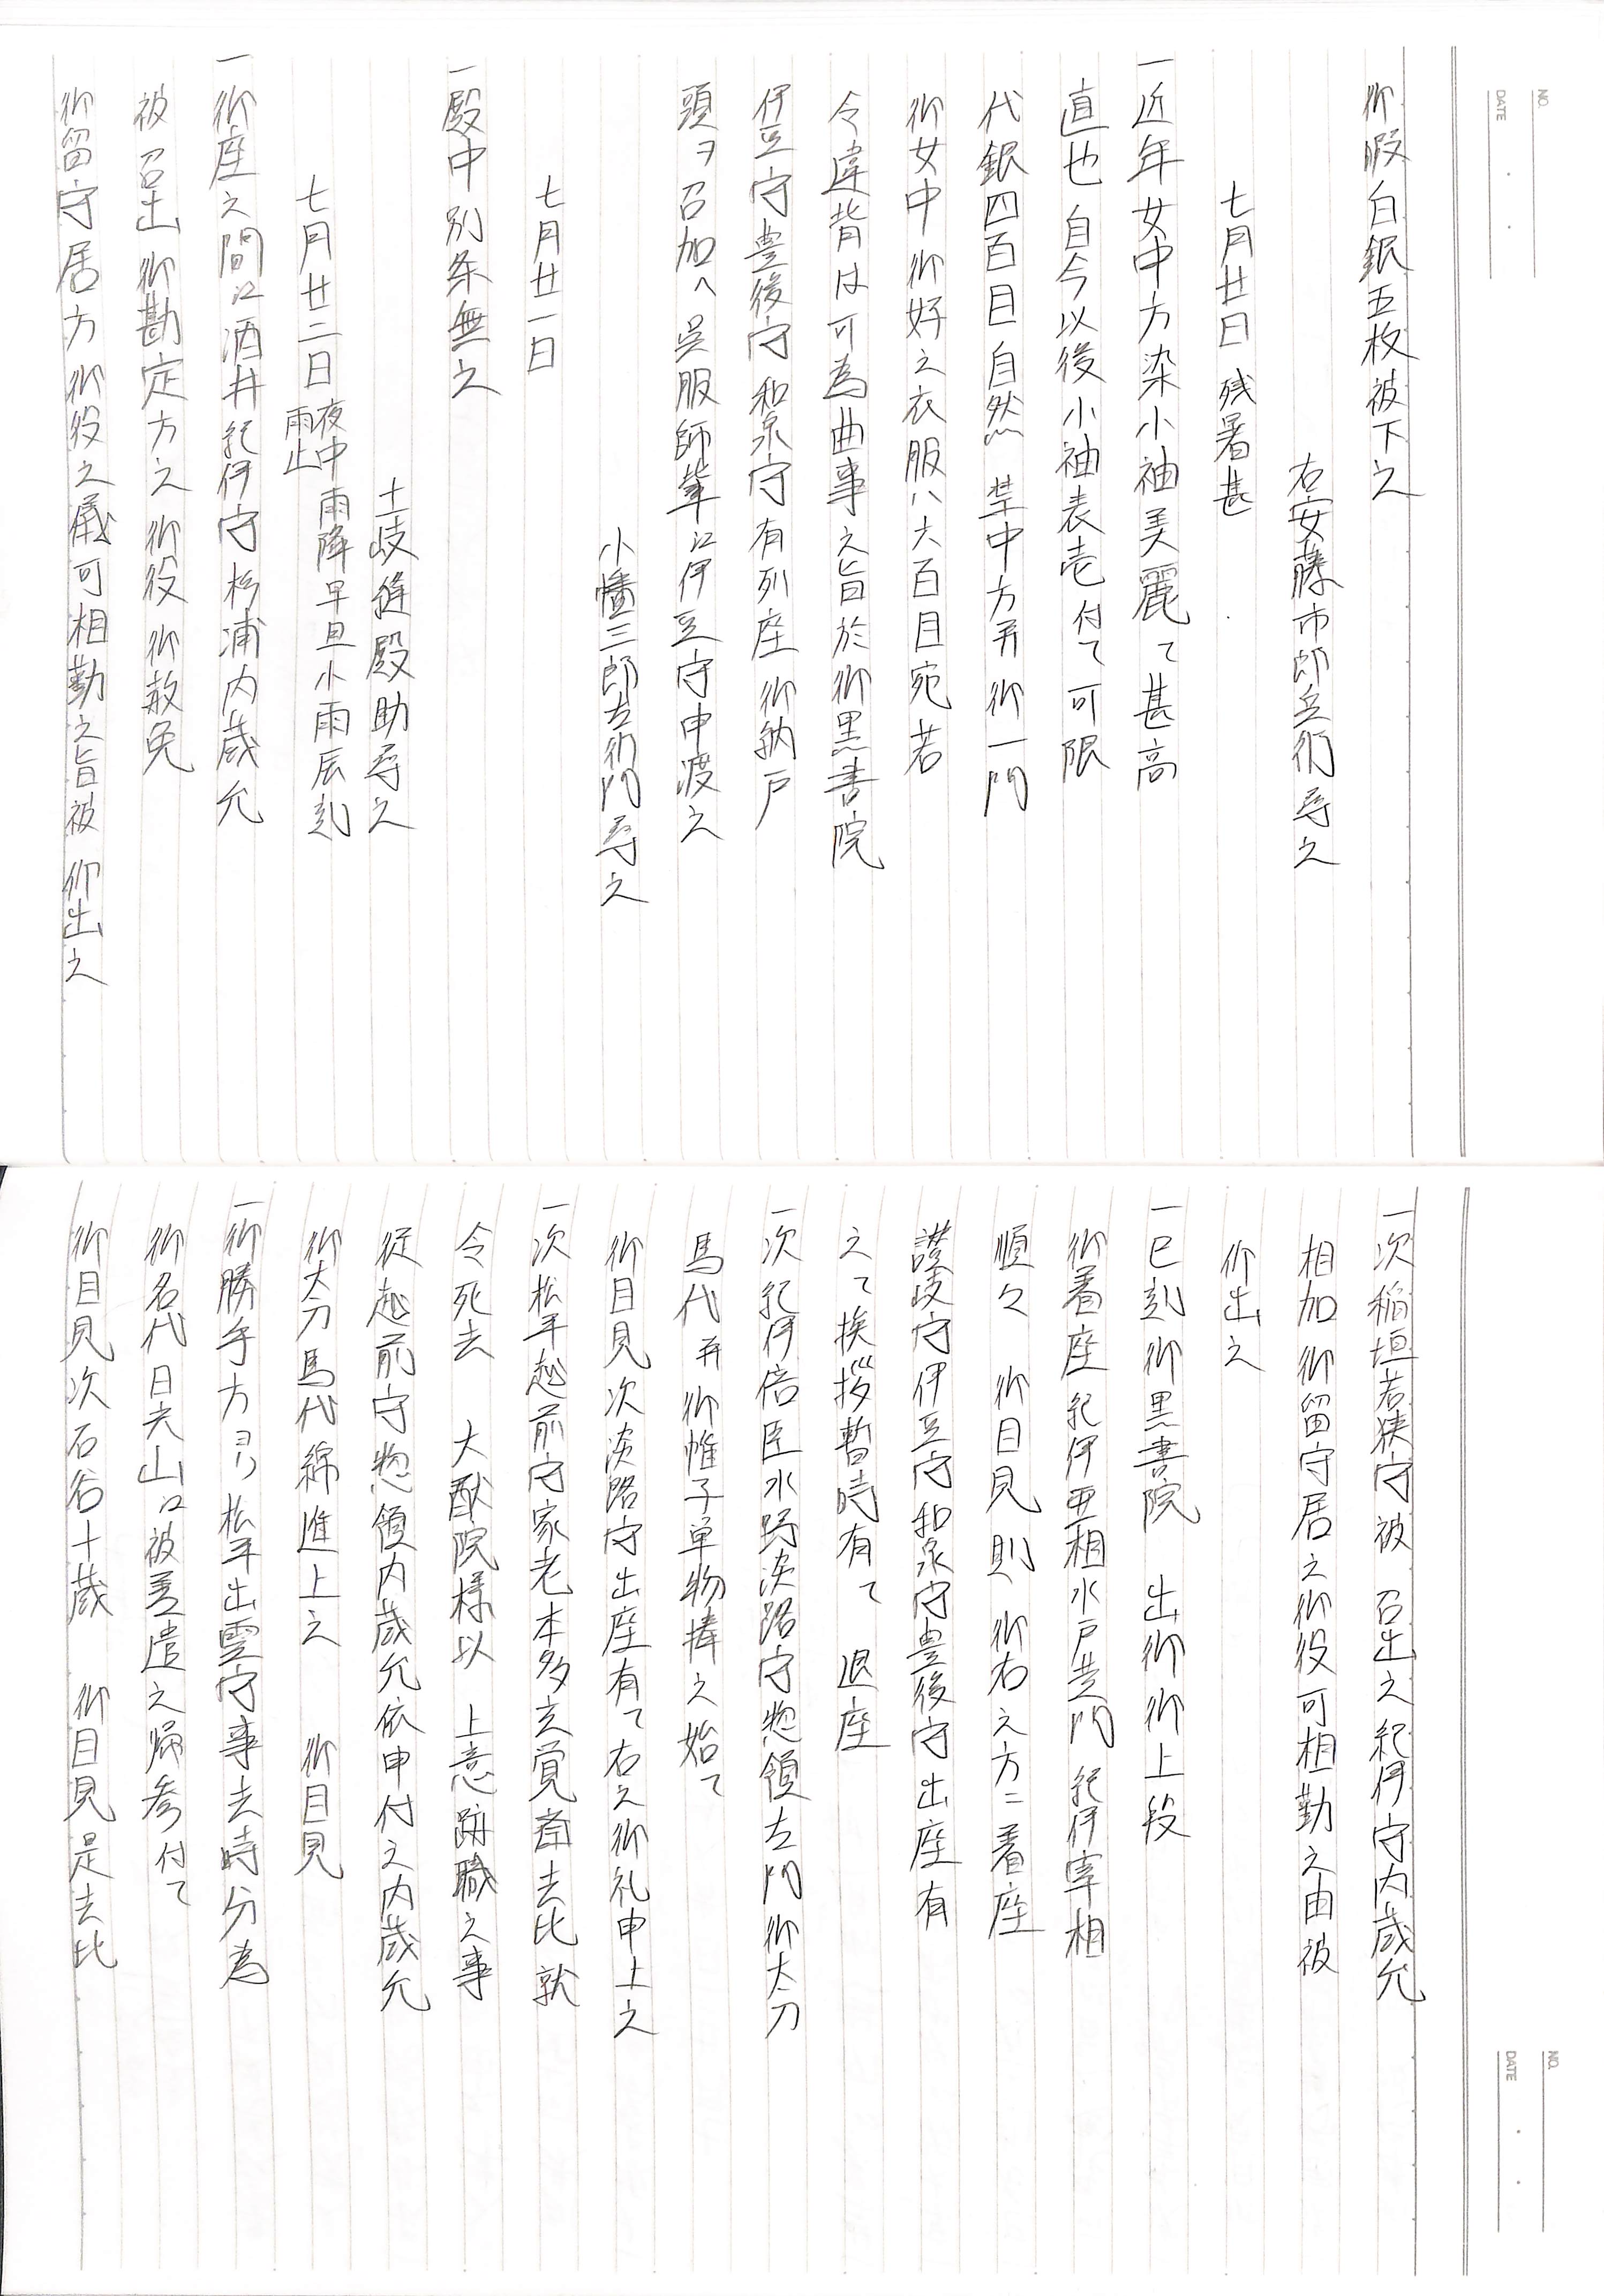 御暇白銀五枚被下之
右安藤市郎兵衛尋之
七月廿日 残暑甚
一近年女中方染小袖美麗て甚高
直也 自今以後小袖表壱付て可限
代銀四百目 自然 禁中方并御一門
御女中御好之衣服ハ大百目宛若
令違背は可為曲事之旨於御黒書院
伊豆守豊後守和泉守有列座御納戸
頭ヲ召加へ呉服師輩江伊豆守申渡之
小幡三郎左衛門尋之
七月廿一日
一殿中別条無之
土岐縫殿助尋之
七月廿二日夜中雨降早旦小雨辰刻雨止
一御座之間江酒井紀伊守杉浦内蔵允
被 召出御勘定方之御役御赦免
御留守居方御役之儀可相勤之旨被 仰出之
NO.
DATE
一次稲垣若狭守被 召出之紀伊守内蔵允
相加御留守居之御役可相勤之由被
仰出之
一巳刻御黒書院 出御御上段
御着座紀伊亜相水戸黄門 紀伊宰相
順々 御目見則御右之方ニ着座
讃岐守伊豆守和泉守豊後守出座有
之て挨拶暫時有て 退座
一次紀伊倍臣水野淡路守惣領左門御太刀
馬代并御帷子単物捧之始て
御目見次淡路守出座有て右之御礼申上之
一次松平越前守家老本多玄覚斎去比就
令死去 大猷院様以 上意跡職之事
従越前守惣領内蔵允依申付之内蔵允
御太刀馬代綿進上之 御目見
一御勝手方ヨリ松平出雲守事去時分為
御名代日光山江被差遣之帰参付て
御目見次石谷十蔵 御目見是去比
NO.
DATE